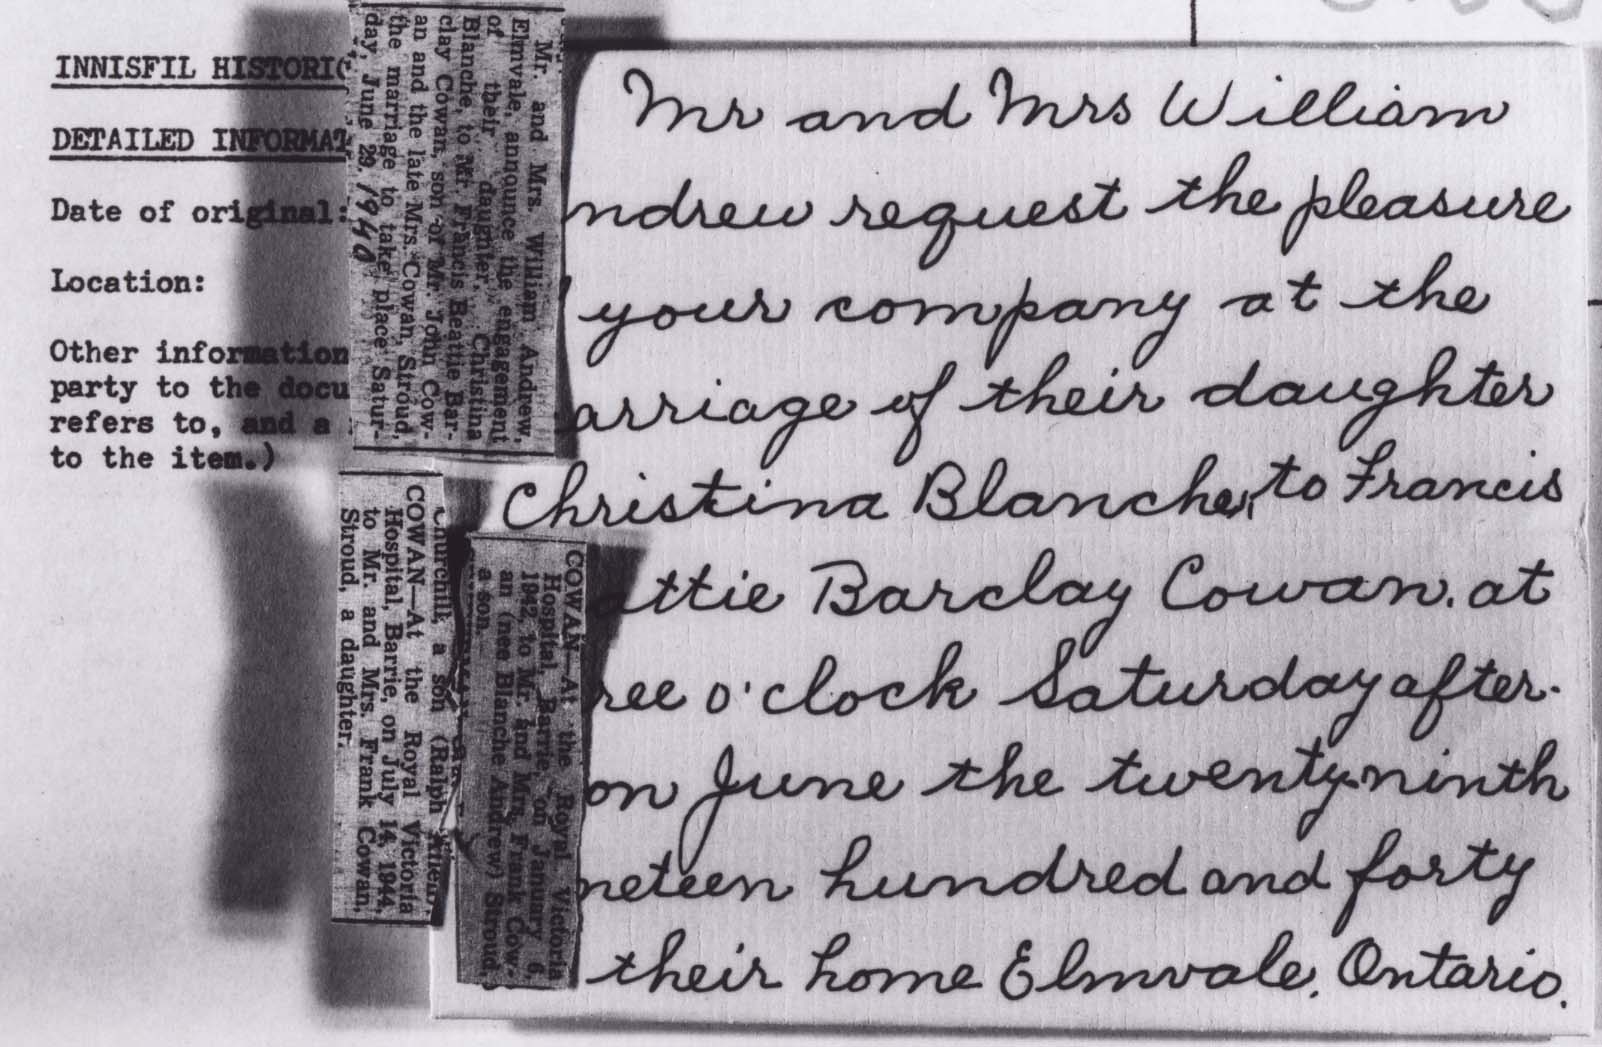 INNISFIL HISTORIC
DETAILED INFORMAT
Date of original:
Location:
Other information
party to the docu
refers to, and a
to the item.)
Mr. and Mrs. William Andrew,
Elmvale, announce the engagement
of their daughter, Christina
Blanche, to Mr. Francis Beattie Bar-
clay Cowan, son of Mr. John Cow-
an and the late Mrs. Cowan, Stroud,
the marriage to take place Satur-
day, June 29. 1940
Churchill, a son (Ralph
COWAN—At the Royal Victoria
Hospital, Barrie, on July 14, 1944,
to Mr. and Mrs. Frank Cowan,
Stroud, a daughter.
COWAN—At the Royal Victoria
Hospital, Barrie, on January 6,
1942, to Mr. and Mrs. Frank Cow-
an (nee Blanche Andrew) Stroud,
a son.
Mr and Mrs William
ndrew request the pleasure
your company at the
arriage of their daughter
Christina Blanche, to Francis
attie Barclay Cowan. at
ree o'clock Saturday after-
on June the twenty-ninth
neteen hundred and forty
their home Elmvale, Ontario.